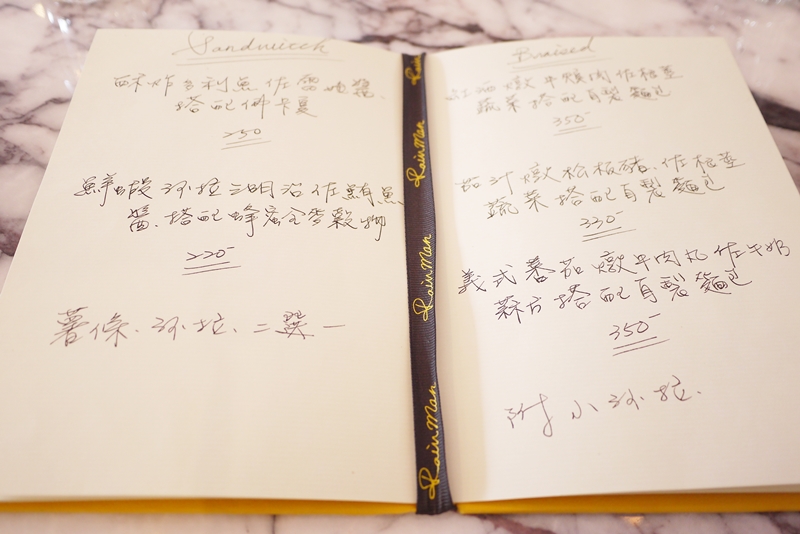 Sandwicch
酥炸多利魚佐雷姆醬.
搭配佛卡夏
250
鮮蝦沙拉三明治佐鮪魚
醬.搭配蜂蜜全麥穀物
220-
薯條.沙拉.二選一
Rain Man
Rain Man
Rain Man
Rain Man
Braised
紅酒燉牛頰肉佐根莖
蔬菜搭配自製麵包
350-
茄汁燉松板豬.佐根莖
蔬菜搭配自製麵包
330-
義式蕃茄燉牛肉丸佐牛奶
蒜片搭配自製麵包
350-
附小沙拉.